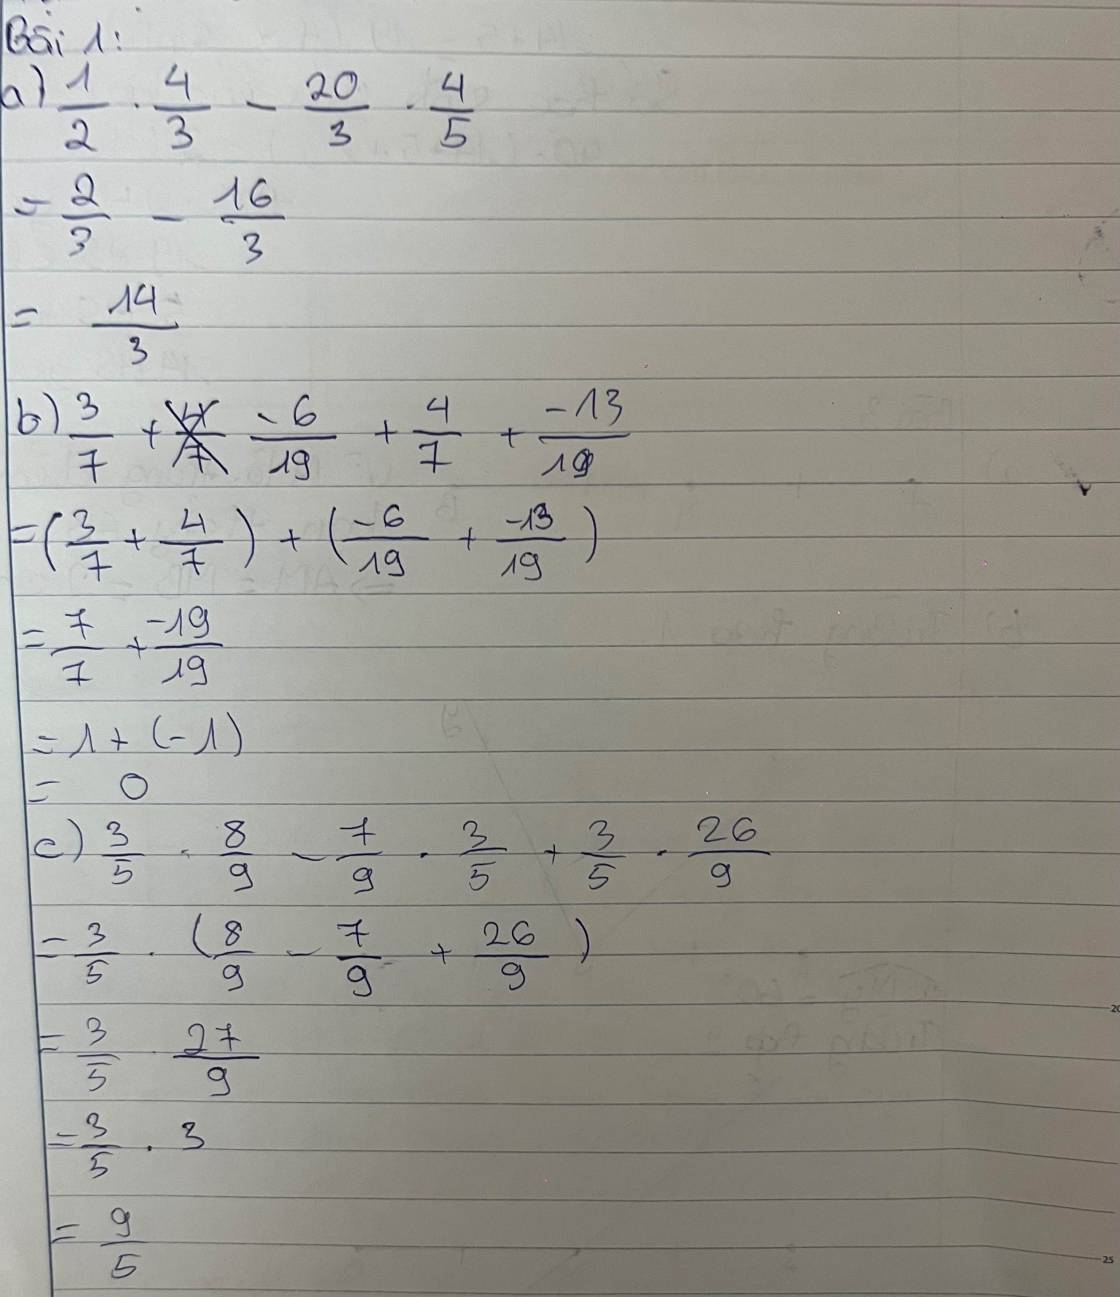 Bài 1:
a) 1/2 . 4/3 - 20/3 . 4/5
= 2/3 - 16/3
= 14/3
b) 3/7 + -6/19 + 4/7 + -13/19
= (3/7 + 4/7) + (-6/19 + -13/19)
= 7/7 + -19/19
= 1 + (-1)
= 0
c) 3/5 . 8/9 - 7/9 . 3/5 + 3/5 . 26/9
= 3/5 . (8/9 - 7/9 + 26/9)
= 3/5 . 27/9
= 3/5 . 3
= 9/5
20
25